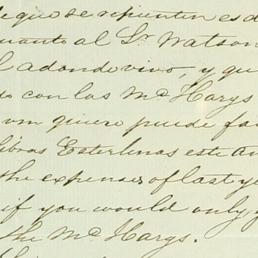 que se repienten es d
uanto al Sr. Watson
adonde vivo, y qu
con los McHargs
um quiere puede fa
libras Esterlinas este an
the expenses of last y
if you would only, y
the McHargs.